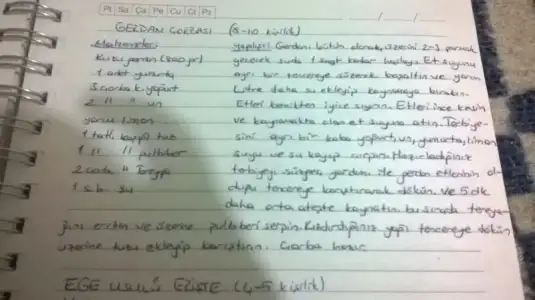 Pt Sa Ça Pe Cu Ct Pz
GERDAN ÇORBASI (8-10 kişilik)
Malzemeler: yapılışı: Gerdanı bütün olarak, üzerini 2-3 parmak
Kuzu gerdan (800 gr) geçecek suda 1 saat kadar haşlayın. Et suyunu
1 adet yumurta ayrı bir tencereye süzerek boşaltın ve yarım
3 çorba k. yoğurt Litre daha su ekleyip kaynamaya bırakın.
2 " " un Etleri kemikten iyice sıyırın. Etleri ince kesin
yarım limon ve kaynamakta olan et suyuna atın. Terbiye-
1 tatlı kaşığı tuz sini ayrı bir kaba yoğurt, un, yumurta, limon
1 " " pulbiber suyu ve su koyup çırpın. Hazırladığınız
2 çorba " Tereyağ terbiyeyi süzgeç yardımı ile gerdan etlerinin ol-
1 s.b. su duğu tencereye karıştırarak dökün. ve 5 dk
daha orta ateşte kaynatın. bu sırada tereya-
ğını eritin ve üzerine pulbiberi serpin. Kızdırdığınız yağı tencereye dökün
üzerine tuzu ekleyip karıştırın. Çorba hazır.
EGE USULÜ ERİŞTE (4-5 kişilik)